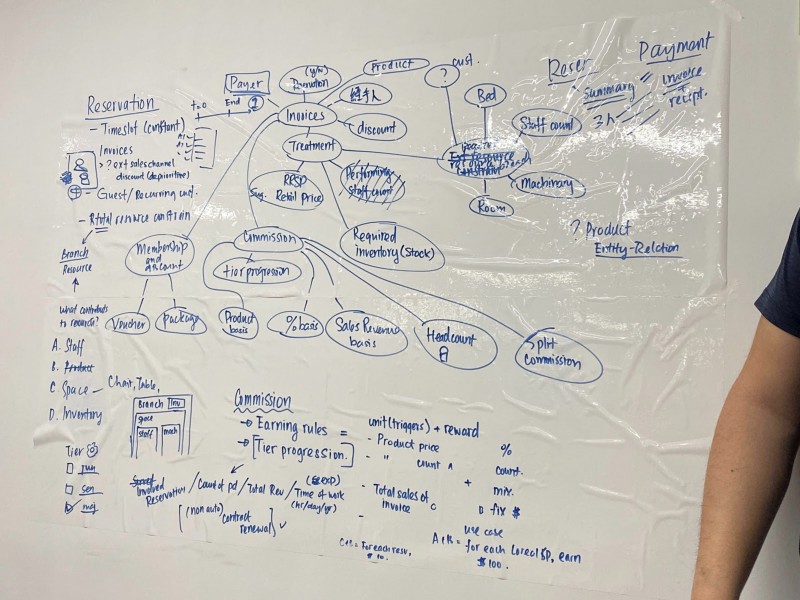 Reservation
- Timeslot (constant)
Invoices
> ? or + sales channel
discount (depriortize)
- Guest / Recurring cust.
Branch
Resource
what contributes
to resource?
A. Staff
B. Product
C Space - Chair, Table,
D. Inventory
Tier
Jun
Sen
t=0
End
Payer
(y/n)
Product
Invoices
discount
Treatment
RRSP
Sug. Retail Price
Performing
Staff count
Required
Inventory (stock)
Membership
and
discount
Voucher
Package
Commission
tier progression
Product
basis
% basis
Sales Revenue
basis
Headcount
Split
Commission
? cust.
Bed
Staff count
Machinary
Room
Summary
3人
Payment
invoice
receipt.
? Product
Entity-Relation
Branch Inv
space
staff mach
Commission
→ Earning rules = unit (triggers) + reward
→ [Tier progression.]
- Product price %
- " count count.
+ mix.
- Total sales of
invoice
fix $
Involved
Reservation / Count of pd / Total Rev / Time of work
(hr/day/yr)
[(non auto) contract
renewal]
use case
= For each resv,
$10.
= for each Local SP, earn
$100.